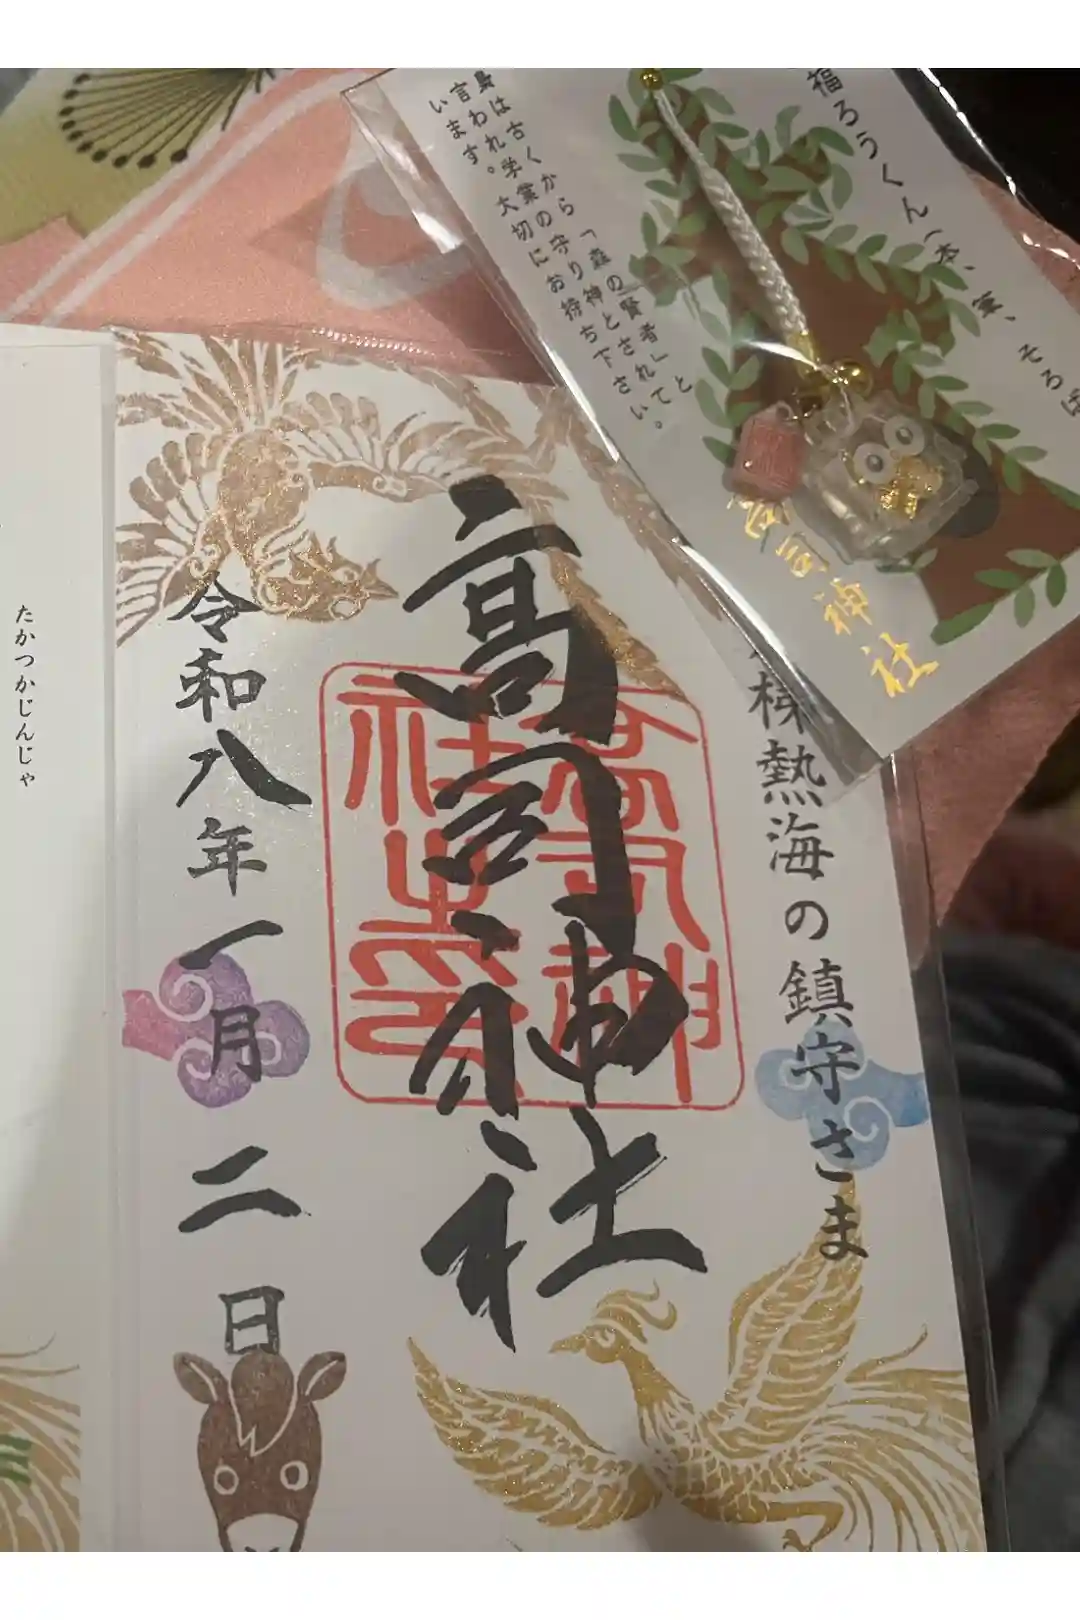 福ろうくん(本、筆、そろば
梟は古くから「森の賢者」と
言われ学業の守り神とされて
います。大切にお持ち下さい。
高司神社
梯熱海の鎮守さま
高司神社
高司神社之印
令和八年一月二日
たかつかじんじゃ